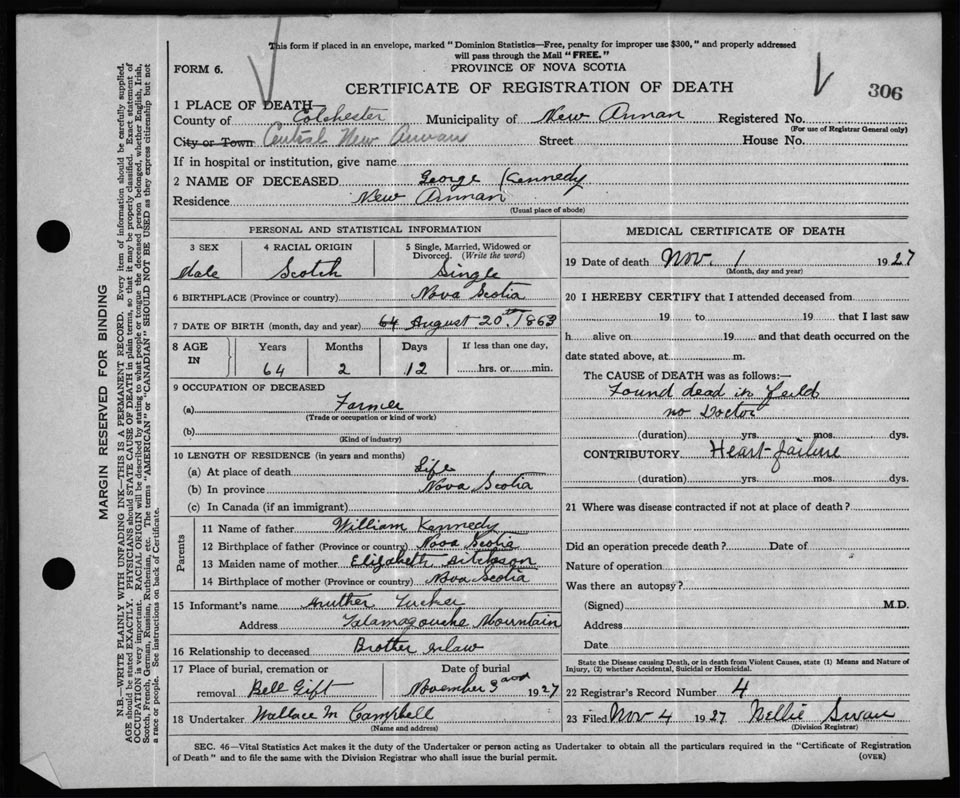 This form if placed in an envelope, marked "Dominion Statistics—Free, penalty for improper use $300," and properly addressed
will pass through the Mail "FREE."
FORM 6.
PROVINCE OF NOVA SCOTIA
CERTIFICATE OF REGISTRATION OF DEATH
306
1 PLACE OF DEATH—
County of Colchester Municipality of New Annan Registered No.
(For use of Registrar General only)
City or Town Central New Annan Street House No.
If in hospital or institution, give name
2 NAME OF DECEASED George Kennedy
Residence New Annan
(Usual place of abode)
PERSONAL AND STATISTICAL INFORMATION
3 SEX 4 RACIAL ORIGIN 5 Single, Married, Widowed or
Divorced. (Write the word)
Male Scotch Single
6 BIRTHPLACE (Province or country) Nova Scotia
7 DATE OF BIRTH (month, day and year) 64 August 20th, 1863
8 AGE IN Years Months Days If less than one day,
64 2 12 hrs. or min.
9 OCCUPATION OF DECEASED
(a) Farmer
(Trade or occupation or kind of work)
(b)
(Kind of industry)
10 LENGTH OF RESIDENCE (in years and months)
(a) At place of death Life
(b) In province Nova Scotia
(c) In Canada (if an immigrant)
Parents
11 Name of father William Kennedy
12 Birthplace of father (Province or country) Nova Scotia
13 Maiden name of mother Elizabeth
14 Birthplace of mother (Province or country) Nova Scotia
15 Informant's name Tucker
Address Tatamagouche Mountain
16 Relationship to deceased Brother inlaw
17 Place of burial, cremation or Date of burial
removal Bell Gift November 3 1927
18 Undertaker Wallace M Campbell
(Name and address)
MEDICAL CERTIFICATE OF DEATH
19 Date of death Nov. 1 1927
(Month, day and year)
20 I HEREBY CERTIFY that I attended deceased from
19 to 19 that I last saw
h alive on 19 and that death occurred on the
date stated above, at m.
The CAUSE of DEATH was as follows:—
Found dead in Feild
no Doctor
(duration) yrs. mos. dys.
CONTRIBUTORY Heart-failure
(duration) yrs. mos. dys.
21 Where was disease contracted if not at place of death?
Did an operation precede death? Date of
Nature of operation
Was there an autopsy?
(Signed) M.D.
Address
Date
State the Disease causing Death, or in death from Violent Causes, state (1) Means and Nature of
Injury, (2) whether Accidental, Suicidal or Homicidal.
22 Registrar's Record Number 4
23 Filed Nov 4 1927 Nellie Swan
(Division Registrar)
SEC. 46—Vital Statistics Act makes it the duty of the Undertaker or person acting as Undertaker to obtain all the particulars required in the "Certificate of Registration
of Death" and to file the same with the Division Registrar who shall issue the burial permit.
(OVER)
MARGIN RESERVED FOR BINDING
N.B.—WRITE PLAINLY WITH UNFADING INK—THIS IS A PERMANENT RECORD. Every item of information should be carefully supplied.
AGE should be stated EXACTLY. PHYSICIANS should STATE CAUSE OF DEATH in plain terms, so that it may be properly classified. Exact statement of
OCCUPATION is very important. RACIAL ORIGIN will be described by stating to what people or tongue the deceased person belonged, whether English, Irish,
Scotch, French, German, Russian, Ruthenian, etc. The terms "AMERICAN" or "CANADIAN" SHOULD NOT BE USED as they express citizenship but not
a race or people. See instructions on back of Certificate.